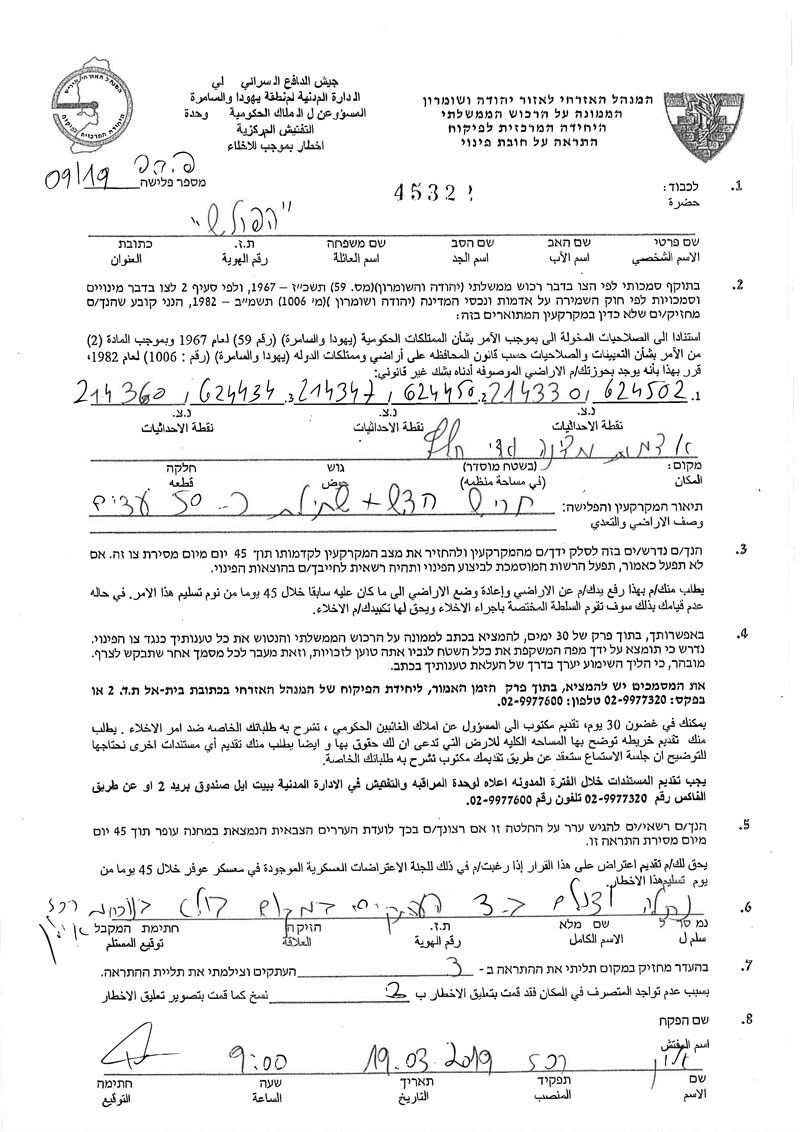 המנהל האזרחי לאזור יהודה ושומרון
הממונה על הרכוש הממשלתי
היחידה המרכזית לפיקוח
התראה על חובת פינוי
جيش الدافع السرائي لي
الدارة المدنية لمنطقة يهودا والسامرة
المسؤوعن ل الملاك الحكومية وحدة
التفتيش المركزية
اخطار بموجب للاخلاء
09/19
מספר פלישה
رقم
1. לכבוד:
حضرة
45322
"הפולש"
שם פרטי שם האב שם הסב שם משפחה ת.ז. כתובת
الاسم الشخصي اسم الأب اسم الجد اسم العائلة رقم الهوية العنوان
2. בתוקף סמכותי לפי הצו בדבר רכוש ממשלתי (יהודה והשומרון)(מס. 59) תשכ"ז – 1967, ולפי סעיף 2 לצו בדבר מינויים
וסמכויות לפי חוק השמירה על אדמות ונכסי המדינה (יהודה ושומרון )(מ' 1006) תשמ"ב – 1982, הנני קובע שהנך/ם
מחזיק/ים שלא כדין במקרקעין המתוארים בזה:
استنادا الى الصلاحيات المخولة الى بموجب الآمر بشأن الممتلكات الحكومية (يهودا والسامرة) (رقم 59) لعام 1967 وبموجب المادة (2)
من الآمر بشأن التعيينات والصلاحيات حسب قانون المحافظه على أراضي وممتلكات الدوله (يهودا والسامرة) (رقم : 1006) لعام 1982,
قرر بهذا بأنه يوجد بحوزتك/م الاراضي الموصوفه أدناه بشك غير قانوني:
1. 214330, 624502 2. 214347, 624450 3. 214360, 624434
נ.צ. נ.צ. נ.צ.
نقطة الاحداثيات نقطة الاحداثيات نقطة الاحداثيات
אדמות מדינה ואדי
מקום: (בשטח מוסדר) גוש חלקה
المكان (في مساحة منظمه) حوض قطعه
תיאור המקרקעין והפלישה: חריש חדש + שתילת כ- 50 עצים
وصف الاراضي والتعدي
3. הנך/ם נדרש/ים בזה לסלק ידך/ם מהמקרקעין ולהחזיר את מצב המקרקעין לקדמותו תוך 45 יום מיום מסירת צו זה. אם
לא תפעל כאמור, תפעל הרשות המוסמכת לביצוע הפינוי ותהיה רשאית לחייבך/ם בהוצאות הפינוי.
يطلب منك/م بهذا رفع يدك/م عن الاراضي وإعادة وضع الاراضي الى ما كان عليه سابقا خلال 45 يوما من نوم تسليم هذا الامر. في حاله
عدم قيامك بذلك سوف تقوم السلطة المختصة باجراء الاخلاء ويحق لها تكبيدك/م الاخلاء.
4. באפשרותך, בתוך פרק של 30 ימים, להמציא בכתב לממונה על הרכוש הממשלתי והנטוש את כל טענותיך כנגד צו הפינוי.
נדרש כי תומצא על ידך מפה המשקפת את כלל השטח לגביו אתה טוען לזכויות, וזאת מעבר לכל מסמך אחר שתבקש לצרף.
מובהר, כי הליך השימוע יערך בדרך של העלאת טענותיך בכתב.
את המסמכים יש להמציא, בתוך פרק הזמן האמור, ליחידת הפיקוח של המנהל האזרחי בכתובת בית-אל ת.ד. 2 או
בפקס: 02-9977320 טלפון: 02-9977600.
يمكنك في غضون 30 يوم, تقديم مكتوب الى المسؤول عن املاك الغائبين الحكومي , تشرح به طلباتك الخاصه ضد امر الاخلاء . يطلب
منك تقديم خريطه توضح بها المساحه الكليه للارض التي تدعى ان لك حقوق بها و ايضا يطلب منك تقديم أي مستندات اخرى نحتاجها
للتوضيح ان جلسة الاستماع ستعقد عن طريق تقديمك مكتوب تشرح به طلباتك الخاصة.
يجب تقديم المستندات خلال الفترة المدونه اعلاه لوحدة المراقبه والتفتيش في الادارة المدنية ببيت ايل صندوق بريد 2 او عن طريق
الفاكس رقم 02-9977320 تلفون رقم 02-9977600.
5. הנך/ם רשאי/ים להגיש ערר על החלטה זו אם רצונך/ם בכך לועדת העררים הצבאית הנמצאת במחנה עופר תוך 45 יום
מיום מסירת התראה זו.
يحق لك/م تقديم اعتراض على هذا القرار إذا رغبت/م في ذلك للجنة الاعتراضات العسكرية الموجودة في معسكر عوفر خلال 45 يوما من
يوم تسليم هذا الاخطار.
6. נתלה וצולם ב-3 העתקים במקום
נמסר ל שם מלא ת.ז. חזיקה חתימת המקבל
سلم ل الاسم الكامل رقم الهوية العلاقة توقيع المستلم
7. בהעדר מחזיק במקום תליתי את ההתראה ב - 3 העתקים וצילמתי את תליית ההתראה.
بسبب عدم تواجد المتصرف في المكان فقد قمت بتعليق الاخطار ب 3 نسخ كما قمت بتصوير تعليق الاخطار
8. שם הפקח
اسم المفتش
רכז 19.03.2019 9:00
שם תפקיד תאריך שעה חתימה
الاسم المنصب التاريخ الساعة التوقيع